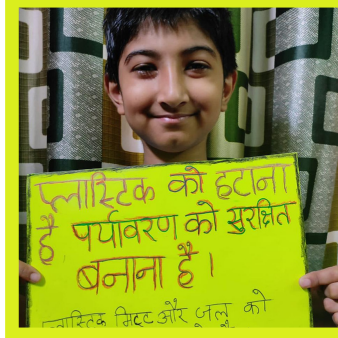 प्लास्टिक को हटाना
है, पर्यावरण को सुरक्षित
बनाना है।
प्लास्टिक मिट्टी और जल को